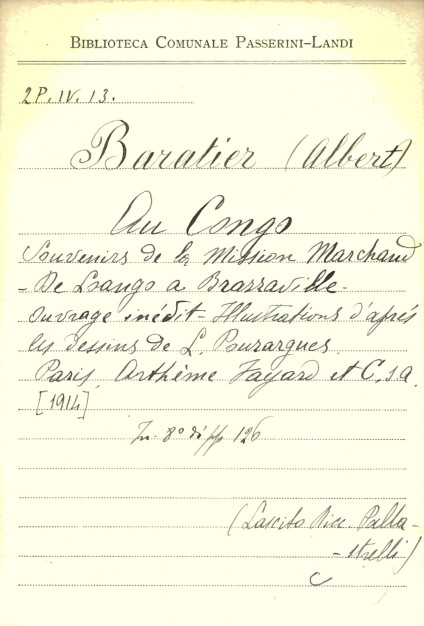 BIBLIOTECA COMUNALE PASSERINI-LANDI
2P.IV.13.
Baratier (Albert)
Au Congo
Souvenirs de la Mission Marchand
- De Loango a Brazzaville -
ouvrage inédit - Illustrations d'après
les dessins de L. Pouzargues.
Paris, Arthème Fayard et C. s.a.
[1914]
In. 8° di pp 126
(Lascito Ricc. Palla-
- strelli)
C